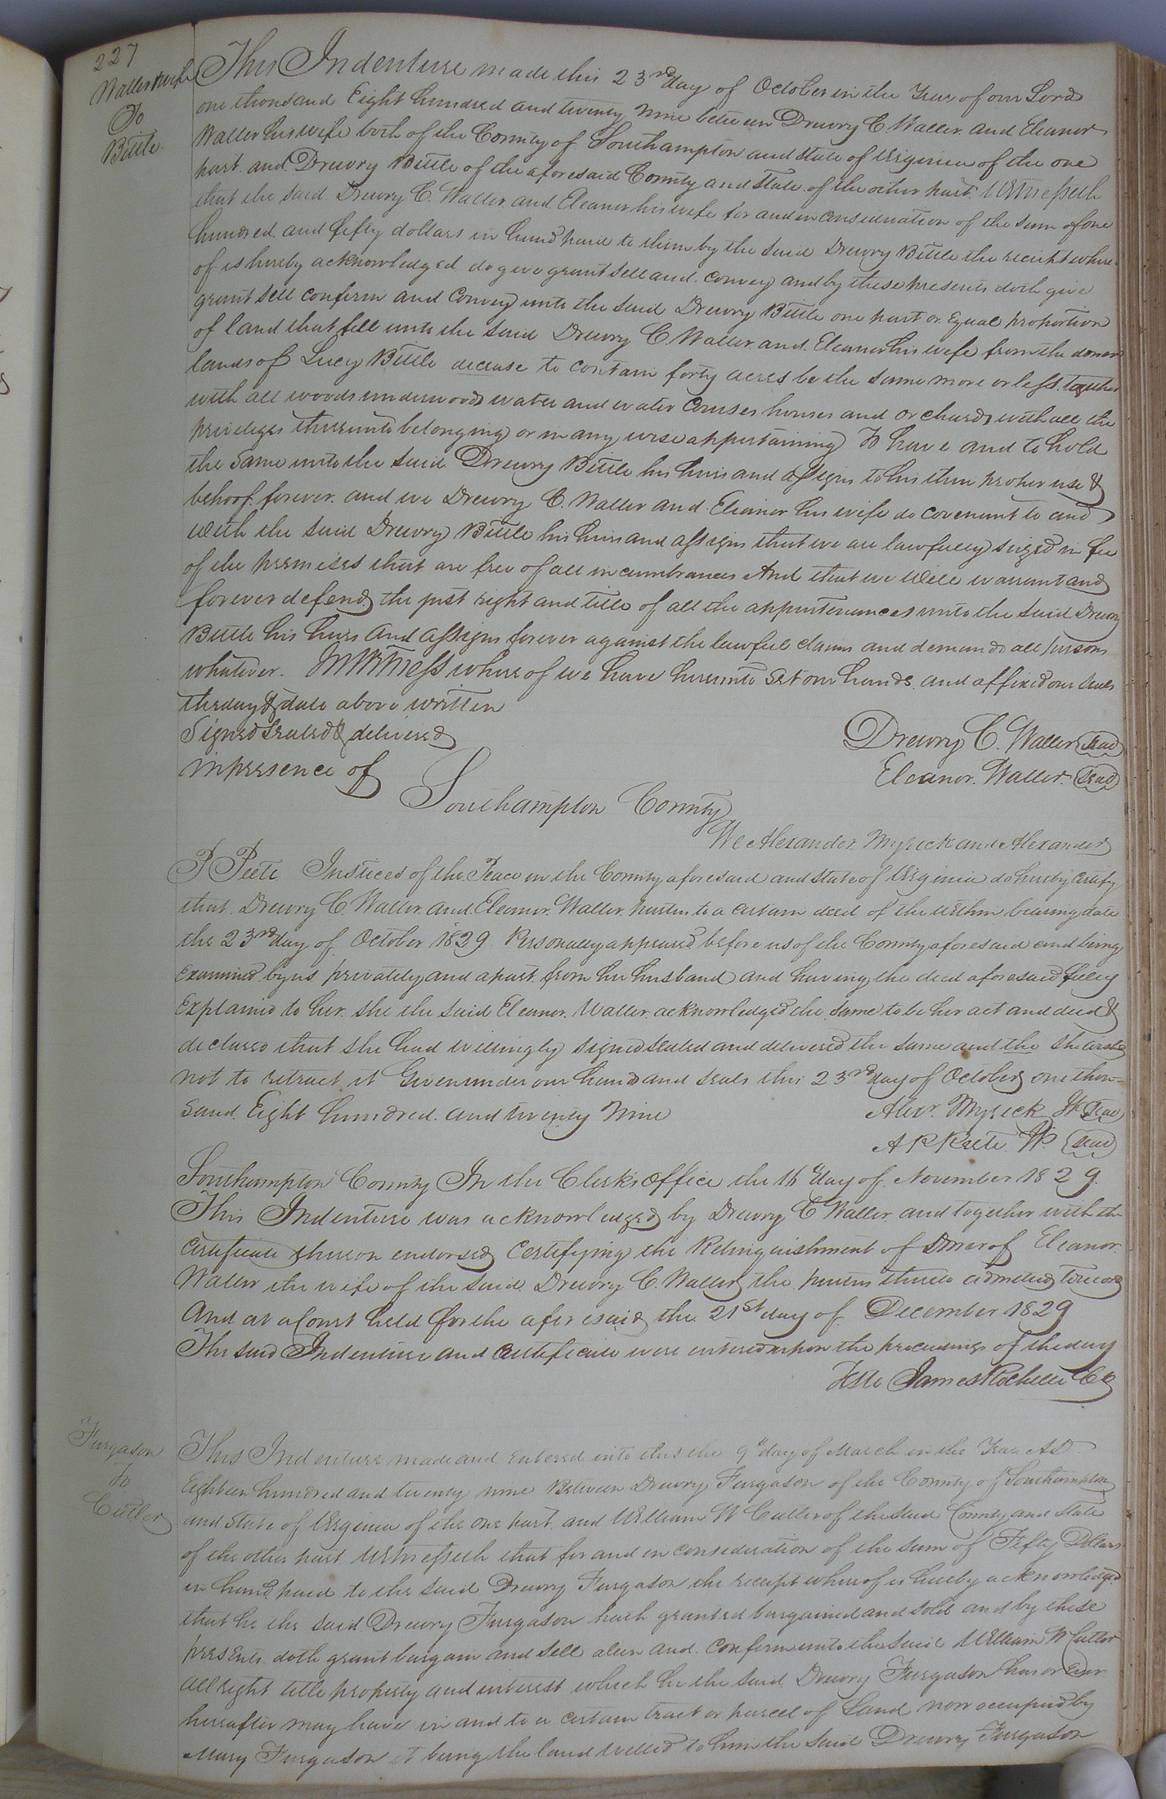 227
Waller & wife
To
Bittle
This Indenture made this 23rd day of October in the Year of our Lord
one thousand Eight hundred and twenty Nine between Drewry C. Waller and Eleanor
Waller his wife both of the County of Southampton and State of Virginia of the one
part and Drewry Bittle of the aforesaid County and State of the other part Witnesseth
that the said Drewry C. Waller and Eleanor his wife for and in consideration of the sum of one
hundred and fifty dollars in hand paid to them by the said Drewry Bittle the receipt where
of is hereby acknowledged do give grant sell and convey and by these presents doth give
grant sell confirm and Convey unto the said Drewry Bittle one part or Equal proportion
of land that fell unto the said Drewry C Waller and Eleanor his wife from the dower
lands of Lucy Bittle decease to contain forty acres be the same more or less together
with all woods underwoods water and water Courses houses and orchards with all the
priveleges thereunto belonging or in any wise appertaining To have and to hold
the same unto the said Drewry Bittle his heirs and assigns to his their proper use &
behoof forever and we Drewry C. Waller and Eleanor his wife do covenant to and
with the said Drewry Bittle his heirs and assigns that we are lawfully seized in fee
of the premises that are free of all incumbrances And that we will warrant and
forever defend the just right and title of all the appurtenances unto the said Drewry
Bittle his heirs and assigns forever against the lawful claims and demands all persons
whatever. In Witness whereof we have hereunto set our hands and affixed our seals
the day & date above written
Signed Sealed & delivered
in presence of
Drewry C. Waller Seal
Eleanor Waller Seal
Southampton County
We Alexander Myrick and Alexander
P Peete Justices of the Peace in the County aforesaid and State of Virginia do hereby certify
that Drewry C. Waller and Eleanor Waller parties to a certain deed of the within bearing date
the 23rd day of October 1829 Personally appeared before us of the County aforesaid and being
Examined by us privately and apart from her husband and having the deed aforesaid fully
Explained to her she the said Eleanor Waller acknowledged the same to be her act and deed &
declared that she had willingly signed sealed and delivered the same and the she wished
not to retract it Given under our hand and seals this 23rd day of October one thou-
sand Eight hundred and twenty Nine
Alexr. Myrick JP Seal
A P Peete JP Seal
Southampton County In the Clerks Office the 16th day of November 1829.
This Indenture was acknowledged by Drewry C Waller and together with the
Certificate thereon endorsed Certifying the Relinquishment of Dower of Eleanor
Waller the wife of the said Drewry C. Waller the parties thereto admitted to record
And at a Court held for the aforesaid the 21st day of December 1829
The said Indenture and Certificate were entered upon the proceedings of the day
Teste James Rochelle CC
Furgason
To
Cutler
This Indenture made and entered into this the 9th day of March in the Year AD
Eighteen hundred and twenty nine Between Drewry Furgason of the County of Southampton
and State of Virginia of the one part and William W Cutler of the said County and State
of the other part Witnesseth that for and in consideration of the sum of Fifty Dollars
in hand paid to the said Drewry Furgason the receipt whereof is hereby acknowledged
that he the said Drewry Furgason hath granted bargained and sold and by these
presents doth grant bargain and sell alien and confirm unto the said William W Cutler
all right title property and interest which he the said Drewry Furgason has or ever
hereafter may have in and to a certain tract or parcel of Land now occupied by
Mary Furgason it being the land willed to him the said Drewry Furgason